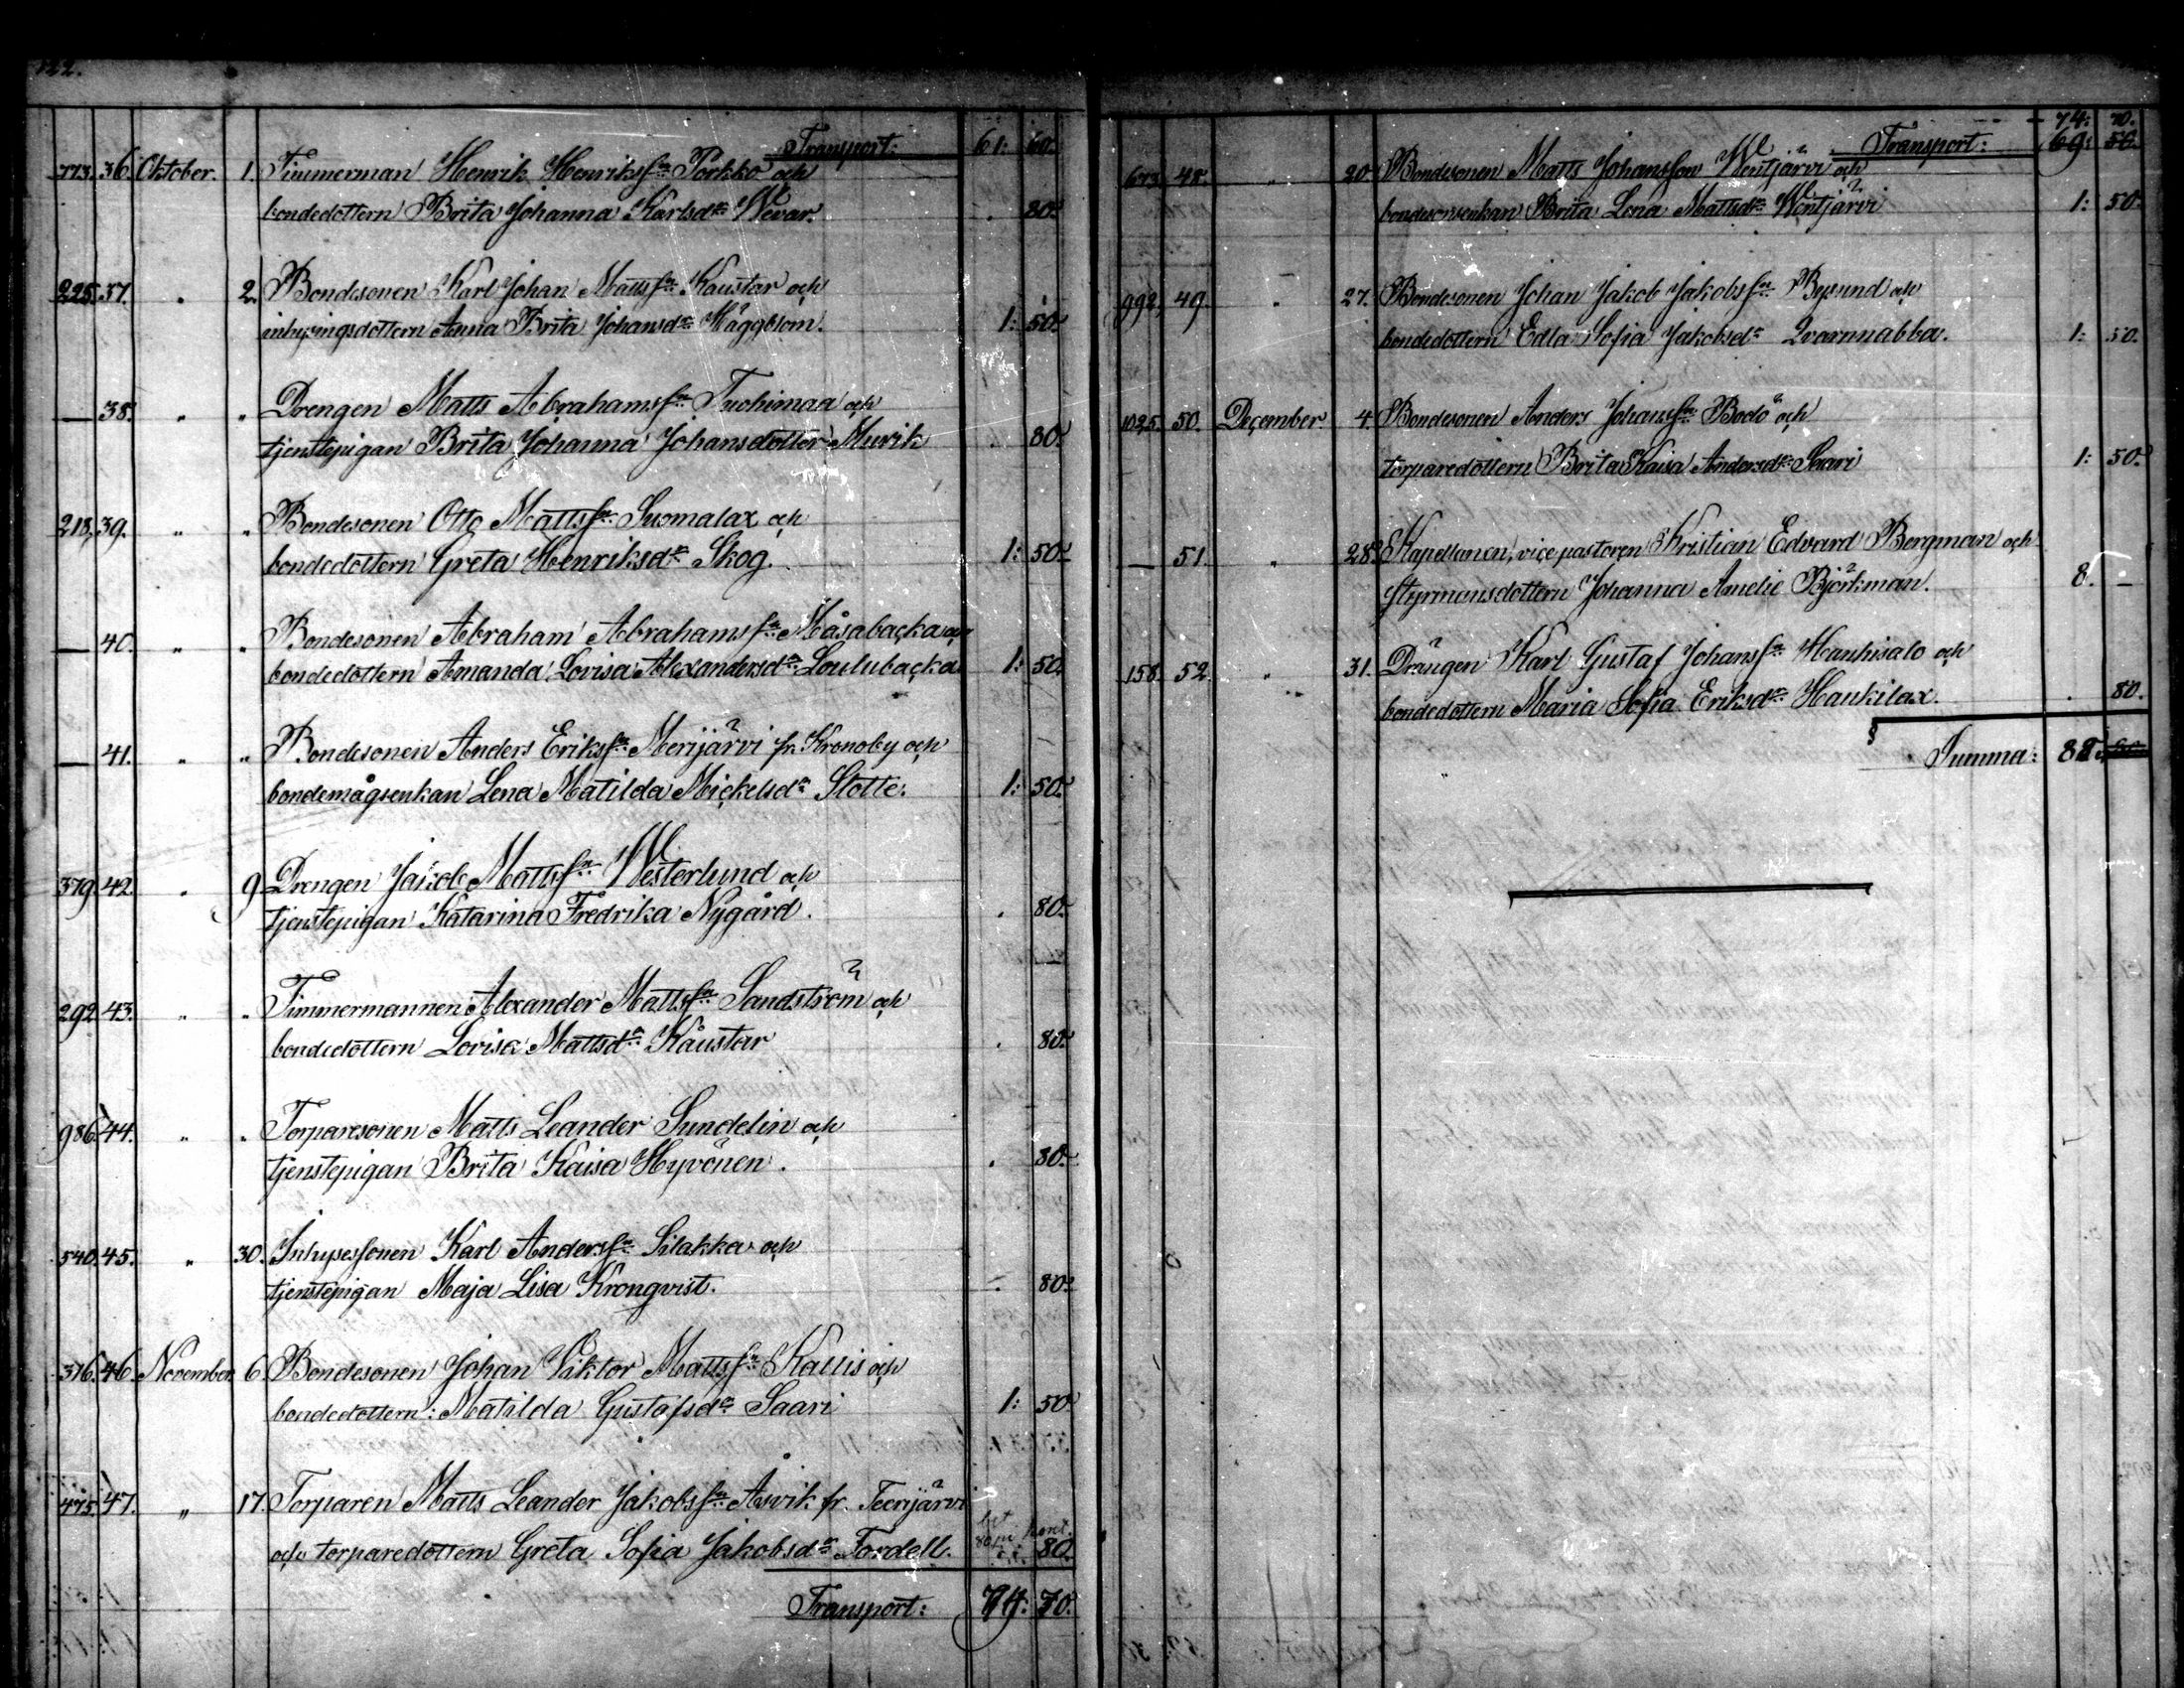 122.
Transport: 61: 60.
773. 36. Oktober. 1. Timmerman Henrik Henriksson Porkko och
bondedottern Brita Johanna Karlsdr Wevar. . 80.
225. 37. " 2. Bondesonen Karl Johan Mattssn Kaustar och
inhysingsdottern Anna Brita Johansdr Häggblom. 1: 50.
— 38. " " Drengen Matts Abrahamssn Tuohimaa och
tjenstepigan Brita Johanna Johansdotter Murik . 80.
213. 39. " " Bondesonen Otto Mattssn Suomalax och
bondedottern Greta Henriksdr Skog. 1: 50.
— 40. " " Bondesonen Abraham Abrahamssn Måsabacka och
bondedottern Amanda Lovisa Alexandersdr Loulubacka 1: 50.
— 41. " " Bondesonen Anders Erikssn Merijärvi fr. Kronoby och
bondemågsenkan Lena Matilda Mickelsdr Slotte. 1: 50.
379. 42. " 9. Drengen Jakob Mattssn Westerlund och
tjenstepigan Katarina Fredrika Nygård. . 80.
292. 43. " " Timmermannen Alexander Mattssn Sandström och
bondedottern Lovisa Mattsdr Kaustar . 80.
986. 44. " " Torparesonen Matts Leander Sundelin och
tjenstepigan Brita Kaisa Hyvönen. . 80.
540. 45. " 30. Inhysessonen Karl Anderssn Silakka och
tjenstepigan Maja Lisa Kronqvist. . 80.
376. 46. November 6. Bondesonen Johan Viktor Mattssn Kallis och
bondedottern: Matilda Gustafsdr Saari 1: 50.
475. 47. " 17. Torparen Matts Leander Jakobssn Åsvik fr. Teerijärvi
och torparedottern Greta Sofia Jakobsdr Fordell. 80.
Transport: 74: 70.
74: 70.
Transport: 69: 50.
673. 48. " 20. Bondesonen Matts Johansson Wentjärvi och
bondesonsenkan Brita Lena Mattsdr Wentjärvi 1: 50.
992. 49. " 27. Bondesonen Johan Jakob Jakobssn Bysund och
bondedottern Edla Sofia Jakobsdr Qvarnnabba. 1: 50.
1025. 50. December 4. Bondesonen Anders Johanssn Bodö och
torparedottern Brita Kaisa Andersdr Saari 1: 50.
— 51. " 28. Kapellanen, vice pastoren Kristian Edvard Bergman och
styrmansdottern Johanna Amelie Björkman. 8. —
158. 52. " 31. Drängen Karl Gustaf Johanssn Hanhisalo och
bondedottern Maria Sofia Eriksdr Haukilax. . 80.
Summa: 88